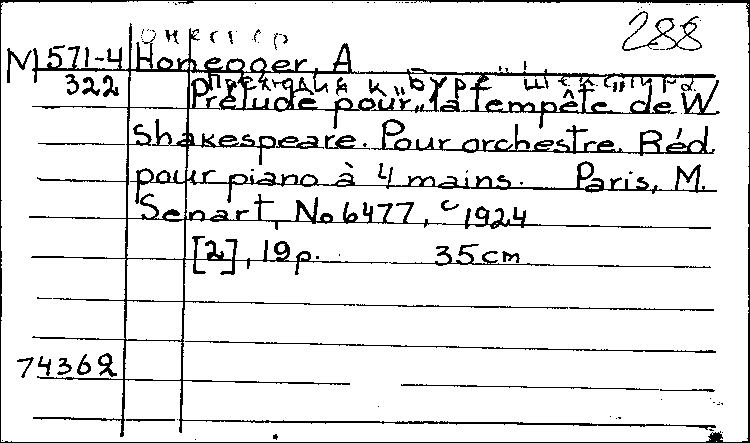 288
Онеггер
М 571-4 Honegger, A
322
Прелюдия к „Буре" Шекспира
Prélude pour „la Tempête" de W.
Shakespeare. Pour orchestre. Réd.
pour piano à 4 mains. Paris, M.
Senart, No 6477, c 1924
[2], 19 p. 35 cm
74362